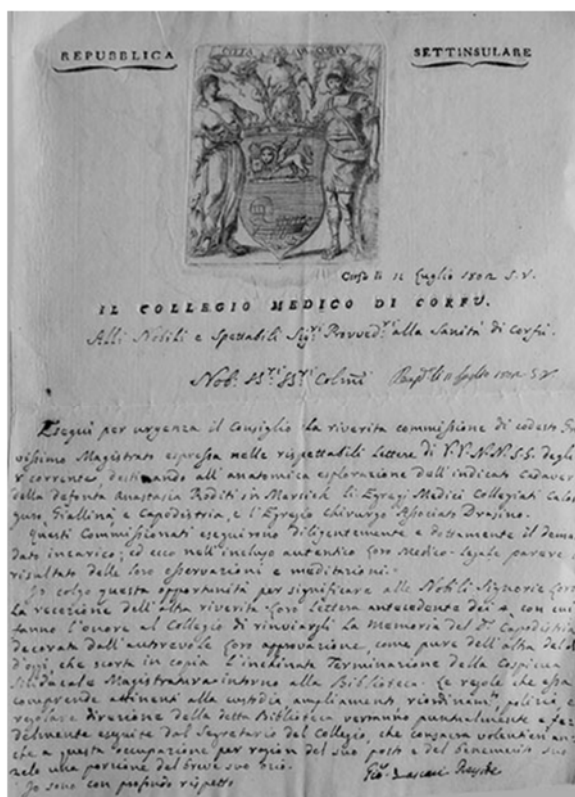 REPUBBLICA SETTINSULARE
CITTÀ
Corfù li 11 Luglio 1802 S. V.
IL COLLEGIO MEDICO DI CORFÙ.
Alli Nobili e Spettabili Sigri Provvedri alla Sanità di Corfù.
Nobi SSri SSri Colmi
li 11 Luglio 1802 S. V.
Eseguì per urgenza il Consiglio la riverita commissione di codesto
vissimo Magistrato espressa nelle rispettabili Lettere di V.V. N.N. S.S. degli
corrente, destinando all'anatomica esplorazione dell'indicato Cadavere
della defonta Anastasia Roditi sin Marsich li Egregi Medici Collegiati Calo
guro, Giallinà e Capodistria, e l'Egregio Chirurgo Associato Drasino.
Questi Commissionati eseguirono diligentemente e dottamente il deman
dato incarico; ed ecco nell'incluso autentico loro Medico-legale parere
risultato delle loro osservazioni e meditazioni.
Io colgo questa opportunità per significare alle Nobili Signorie loro
la recezione dell'altra riverita loro Lettera antecedente dei con cui
fanno l'onore al Collegio di rinviargli la Memoria del Dr Capodistria
decorata dall'autorevole loro approvazione, come pure dell'altra del
d'oggi, che scorta in copia l'inchinata Terminazione della Cospicua
Sindacale Magistratura intorno alla Biblioteca. Le regole che essa
comprende attinenti alla custodia ampliamento, riordinamto, polizia, e
regolare direzione della detta Biblioteca verranno puntualmente e fe
delmente eseguite dal Segretario del Collegio, che consacra volentieri an
che a questa occupazione per ragion del suo posto e del benemerito suo
zelo una porzione del breve suo ozio.
Io sono con profondo rispetto
Gio. Lascari